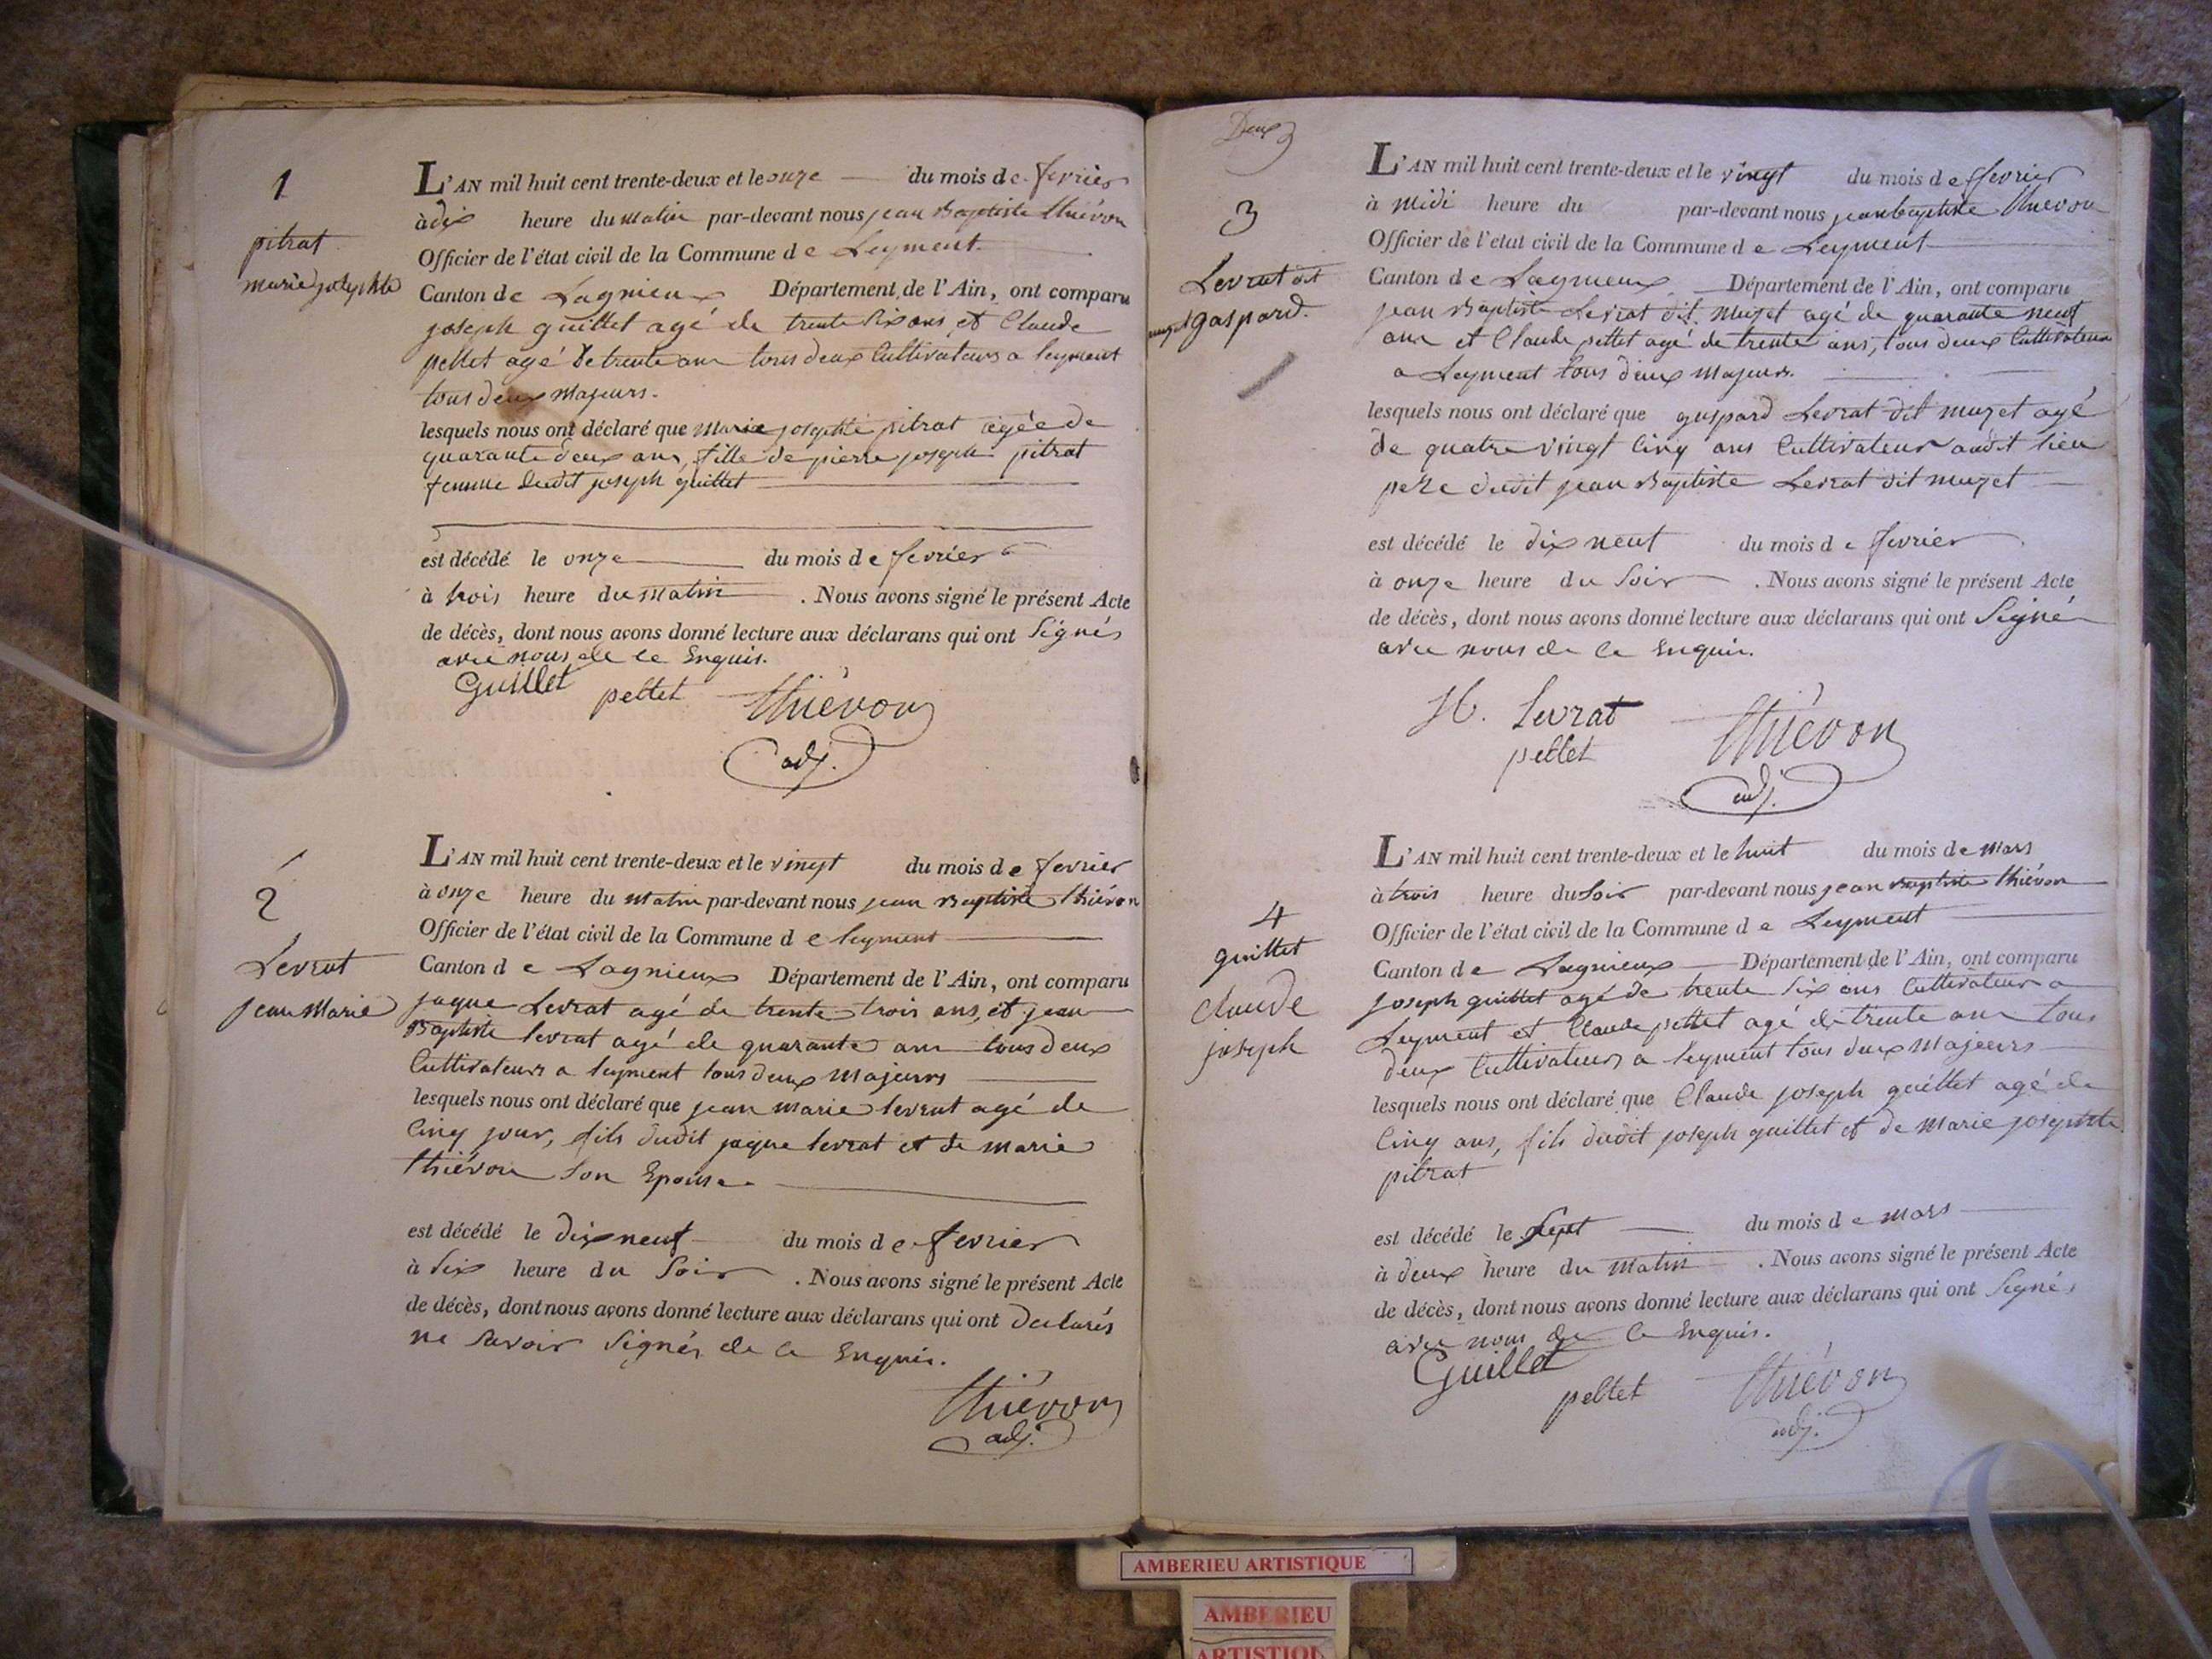 1
pitrat
marie josephte
L'AN mil huit cent trente-deux et le onze du mois de fevrier
à dix heure du matin par-devant nous jean Baptiste thiévon
Officier de l'état civil de la Commune de Leyment
Canton de Lagnieux Département de l'Ain, ont comparu
joseph guillet agé de trente six ans, et Claude
pellet agé de trente ans tous deux Cultivateurs a leyment
tous deux majeurs.
lesquels nous ont déclaré que marie josephte pitrat agée de
quarante deux ans, fille de pierre joseph pitrat
femme dudit joseph guillet
est décédé le onze du mois de fevrier
à trois heure du matin. Nous avons signé le présent Acte
de décès, dont nous avons donné lecture aux déclarans qui ont signés
avec nous de ce Enquis.
Guillet pellet thiévon
adj.
2
Levrat
jean Marie
L'AN mil huit cent trente-deux et le vingt du mois de fevrier
à onze heure du matin par-devant nous jean Baptiste thiévon
Officier de l'état civil de la Commune de leyment
Canton de Lagnieux Département de l'Ain, ont comparu
jaque Levrat agé de trente trois ans, et jean
Baptiste levrat agé de quarante ans tous deux
Cultivateurs a leyment tous deux majeurs
lesquels nous ont déclaré que jean marie levrat agé de
Cinq jour, fils dudit jaque levrat et de marie
thiévon son Epouse.
est décédé le dix neuf du mois de fevrier
à six heure du soir. Nous avons signé le présent Acte
de décès, dont nous avons donné lecture aux déclarans qui ont declarés
ne savoir signés de ce Enquis.
thiévon
adj.
Deux
3
Levrat dit
muzet gaspard.
L'AN mil huit cent trente-deux et le vingt du mois de fevrier
à midi heure du par-devant nous jean baptiste thievon
Officier de l'état civil de la Commune de Leyment
Canton de Lagnieux Département de l'Ain, ont comparu
jean Baptiste Levrat dit muzet agé de quarante neuf
ans et Claude pellet agé de trente ans, tous deux Cultivateurs
a Leyment tous deux majeurs.
lesquels nous ont déclaré que gaspard Levrat dit muzet agé
de quatre vingt Cinq ans Cultivateur audit lieu
pere dudit jean Baptiste Levrat dit muzet
est décédé le dix neuf du mois de fevrier
à onze heure du soir. Nous avons signé le présent Acte
de décès, dont nous avons donné lecture aux déclarans qui ont signé
avec nous de ce Enquis.
levrat thiévon
pellet
adj.
4
guillet
claude
joseph
L'AN mil huit cent trente-deux et le huit du mois de mars
à trois heure du soir par-devant nous jean Baptiste thiévon
Officier de l'état civil de la Commune de Leyment
Canton de Lagnieux Département de l'Ain, ont comparu
joseph guillet agé de trente six ans Cultivateur a
Leyment et Claude pellet agé de trente ans tous
deux Cultivateurs a leyment tous deux majeurs
lesquels nous ont déclaré que Claude joseph guillet agé de
Cinq ans, fils dudit joseph guillet et de marie josephte
pitrat
est décédé le sept du mois de mars
à deux heure du matin. Nous avons signé le présent Acte
de décès, dont nous avons donné lecture aux déclarans qui ont signés
avec nous de ce Enquis.
Guillet
pellet thiévon
adj.
AMBERIEU ARTISTIQUE
AMBERIEU